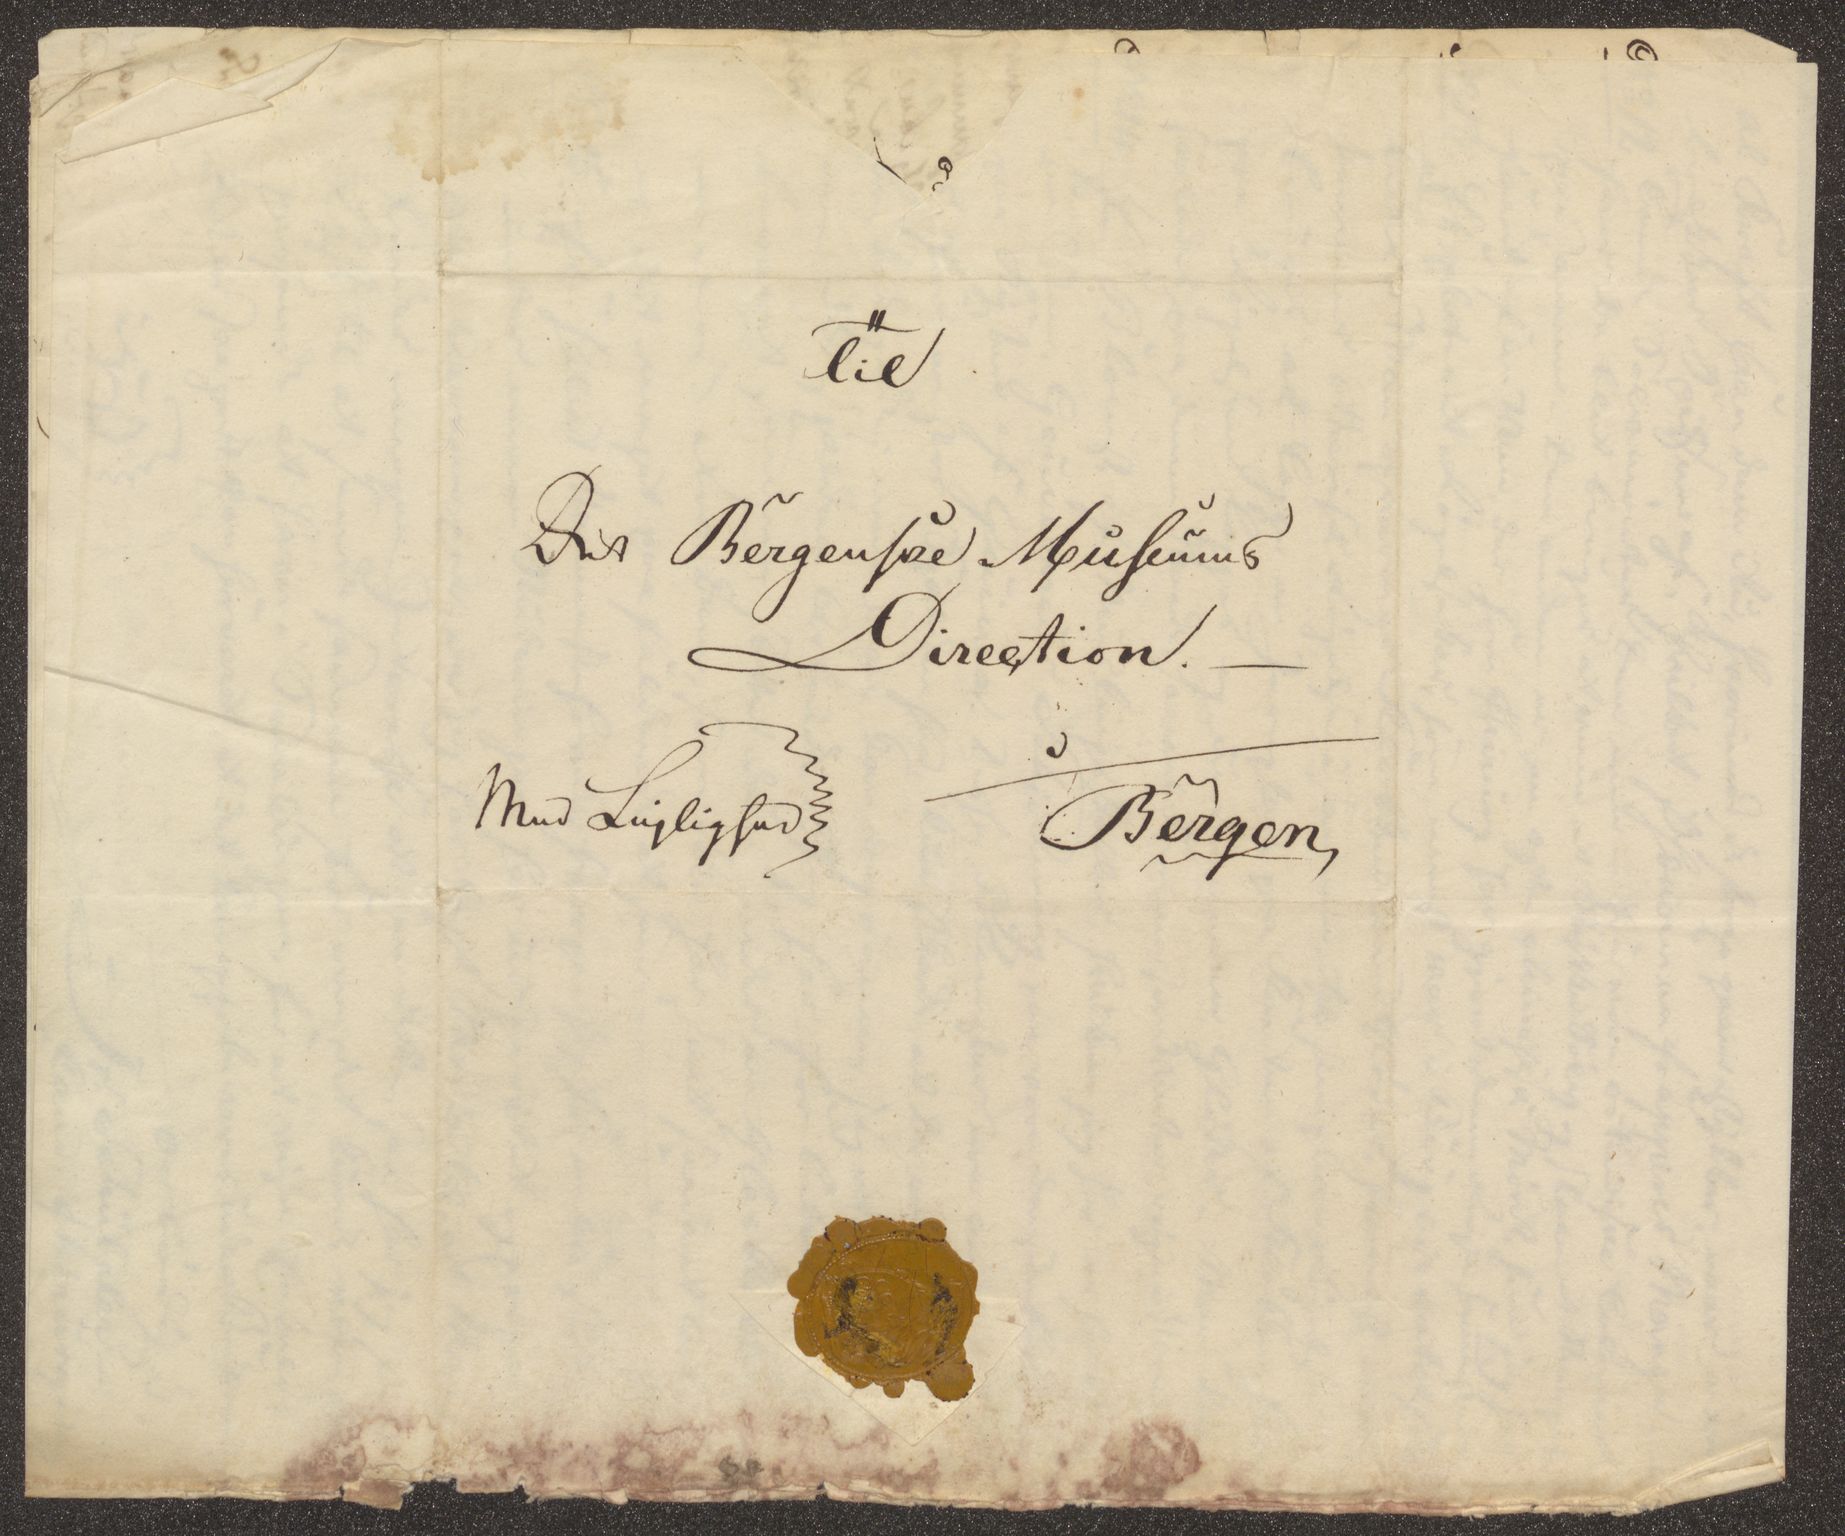 Til
Det Bergenske Museums
Direction.
Med Leylighed
i
Bergen,